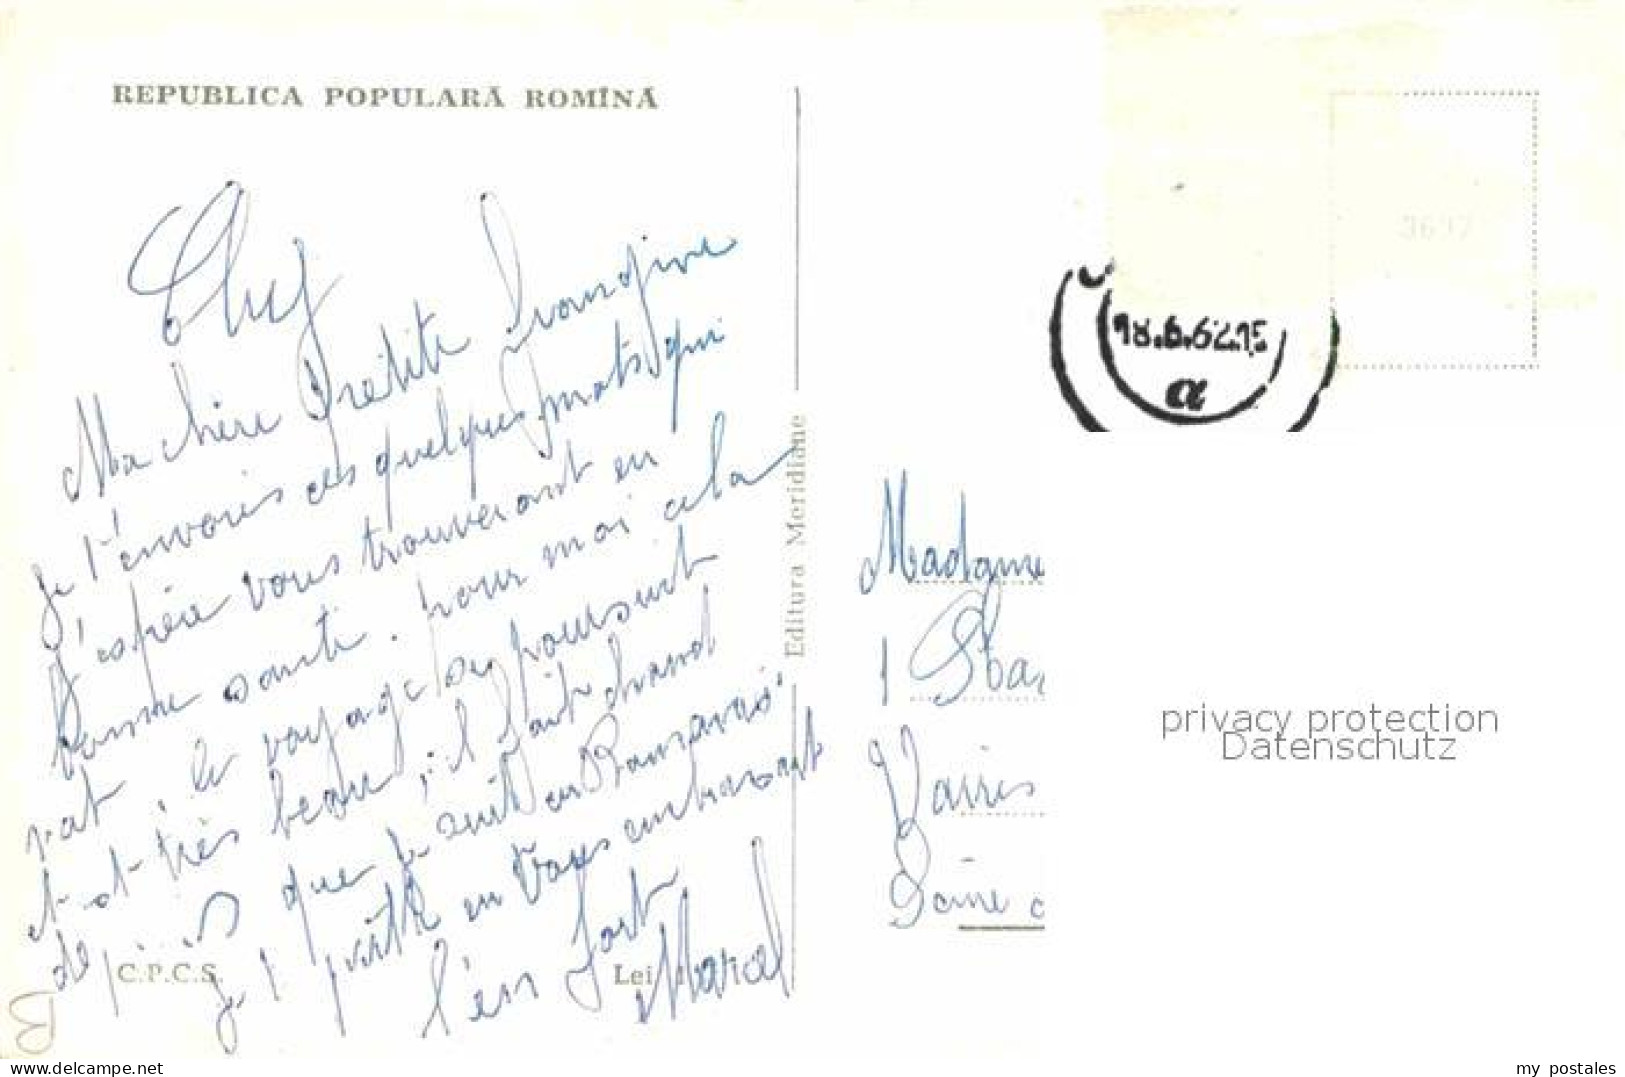 REPUBLICA POPULARĂ ROMÎNĂ
Cluj
Ma chère petite Françoise
je t'envoies ces quelques mots qui
j'espère vous trouveront en
bonne santé. pour moi cela
vat, le voyage se poursuit
et est très beau, il fait chaud
depuis que je suit en
je quitte en vous embrassant
bien fort
Marcel
C.P.C.S.
Lei
Editura Meridiane
18.6.62.15
a
Madame
1
Vaires
Seine
privacy protection
Datenschutz
delcampe.net
my_postales